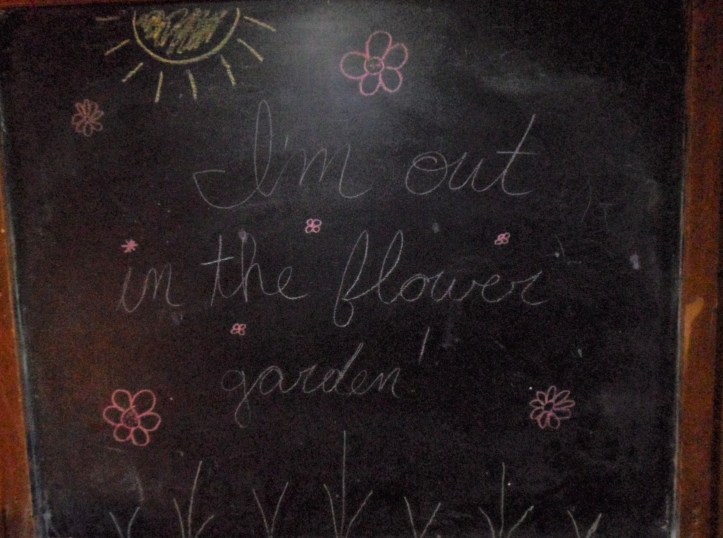 I'm out
in the flower
garden!